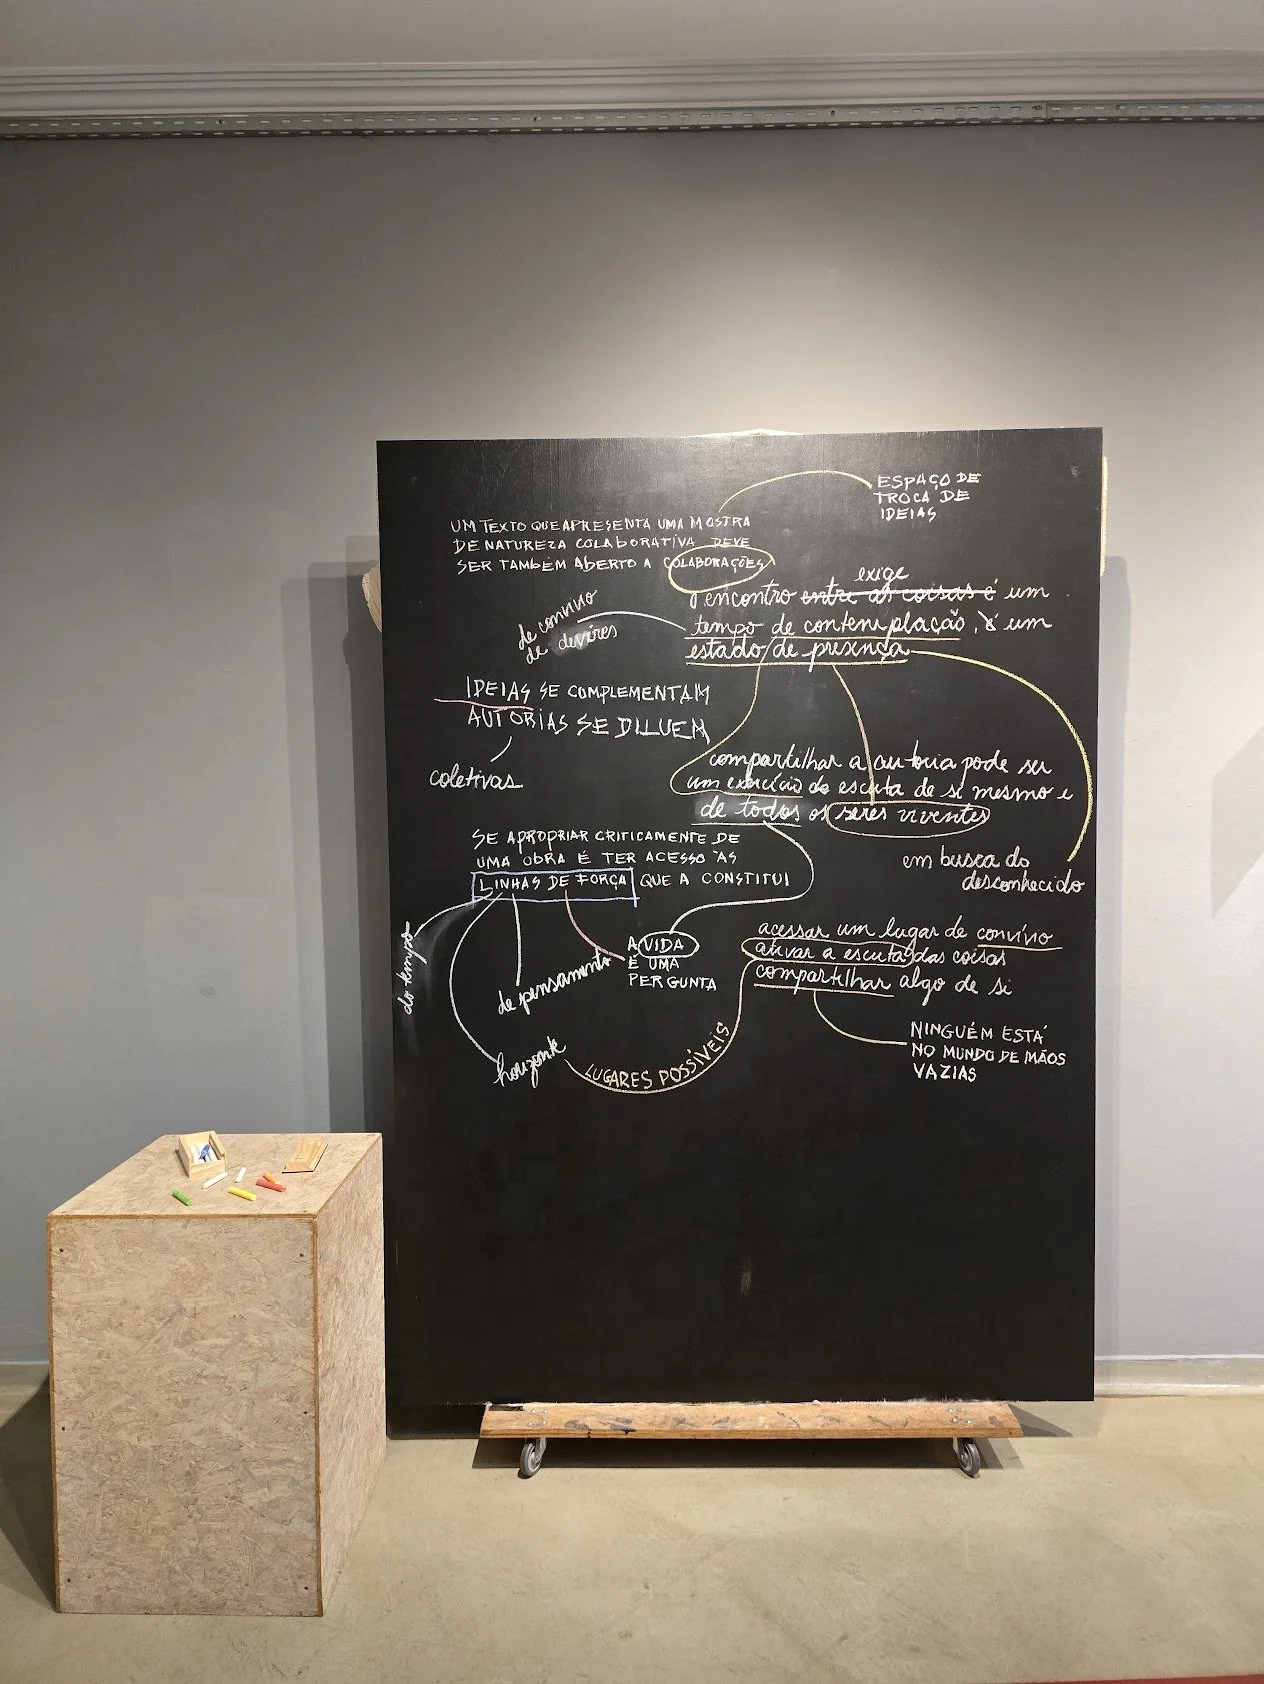 ESPAÇO DE
TROCA DE
IDEIAS
UM TEXTO QUE APRESENTA UMA MOSTRA
DE NATUREZA COLABORATIVA DEVE
SER TAMBÉM ABERTO A COLABORAÇÕES
exige
o encontro entre as coisas é um
tempo de contemplação, é um
estado de presença
de convívio
de devires
IDEIAS SE COMPLEMENTAM
AUTORIAS SE DILUEM
coletivas
compartilhar a autoria pode ser
um exercício de escuta de si mesmo e
de todos os seres viventes
em busca do
desconhecido
SE APROPRIAR CRITICAMENTE DE
UMA OBRA É TER ACESSO ÀS
LINHAS DE FORÇA QUE A CONSTITUI
do tempo
de pensamento
horizonte
A VIDA
É UMA
PERGUNTA
acessar um lugar de convívio
ativar a escuta das coisas
compartilhar algo de si
LUGARES POSSÍVEIS
NINGUÉM ESTÁ
NO MUNDO DE MÃOS
VAZIAS